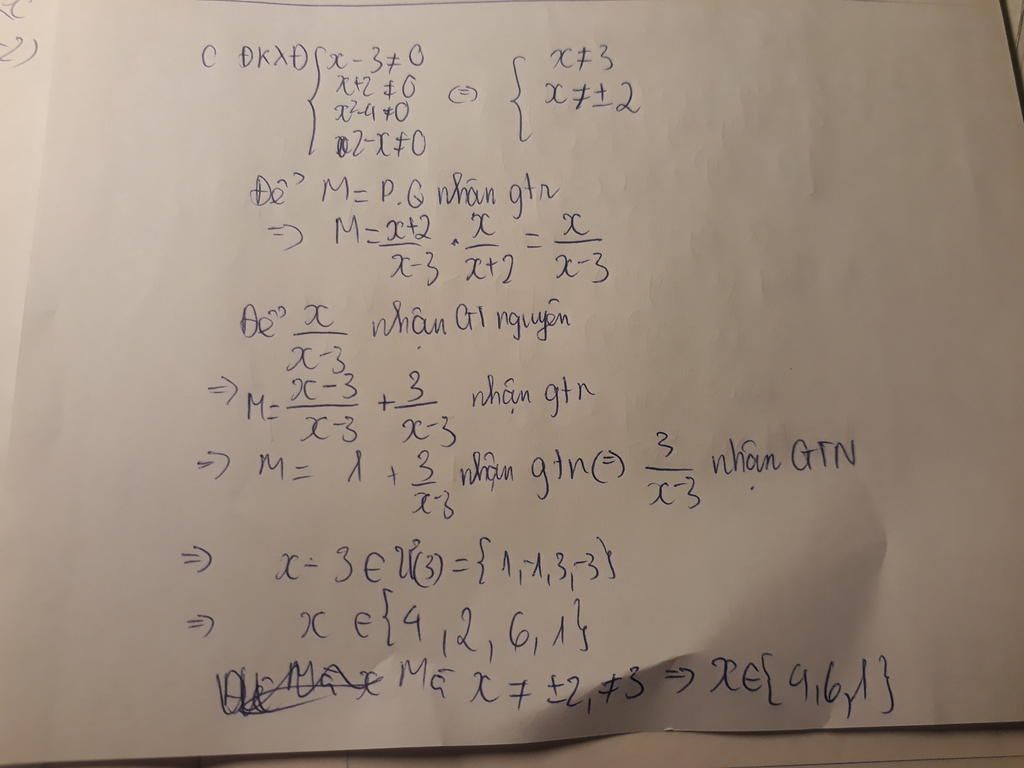 2)
C ĐKXĐ { x - 3 ≠ 0
x+2 ≠ 0
x²-4 ≠ 0
2-x ≠ 0
⇔ { x ≠ 3
x ≠ ± 2
Để M = P.Q nhận gtn
⇒ M = (x+2)/(x-3) . x/(x+2) = x/(x-3)
Để x/(x-3) nhận GT nguyên
⇒ M = (x-3)/(x-3) + 3/(x-3) nhận gtn
⇒ M = 1 + 3/(x-3) nhận gtn ⇔ 3/(x-3) nhận GTN
⇒ x - 3 ∈ Ư(3) = {1,-1,3,-3}
⇒ x ∈ {4, 2, 6, 1}
Mà x ≠ ±2, ≠3 ⇒ x ∈ {4,6,1}